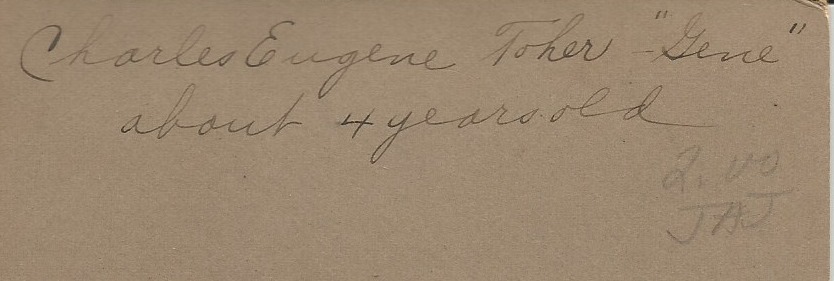 Charles Eugene Toher - "Gene"
about 4 years old
2.00
JAJ